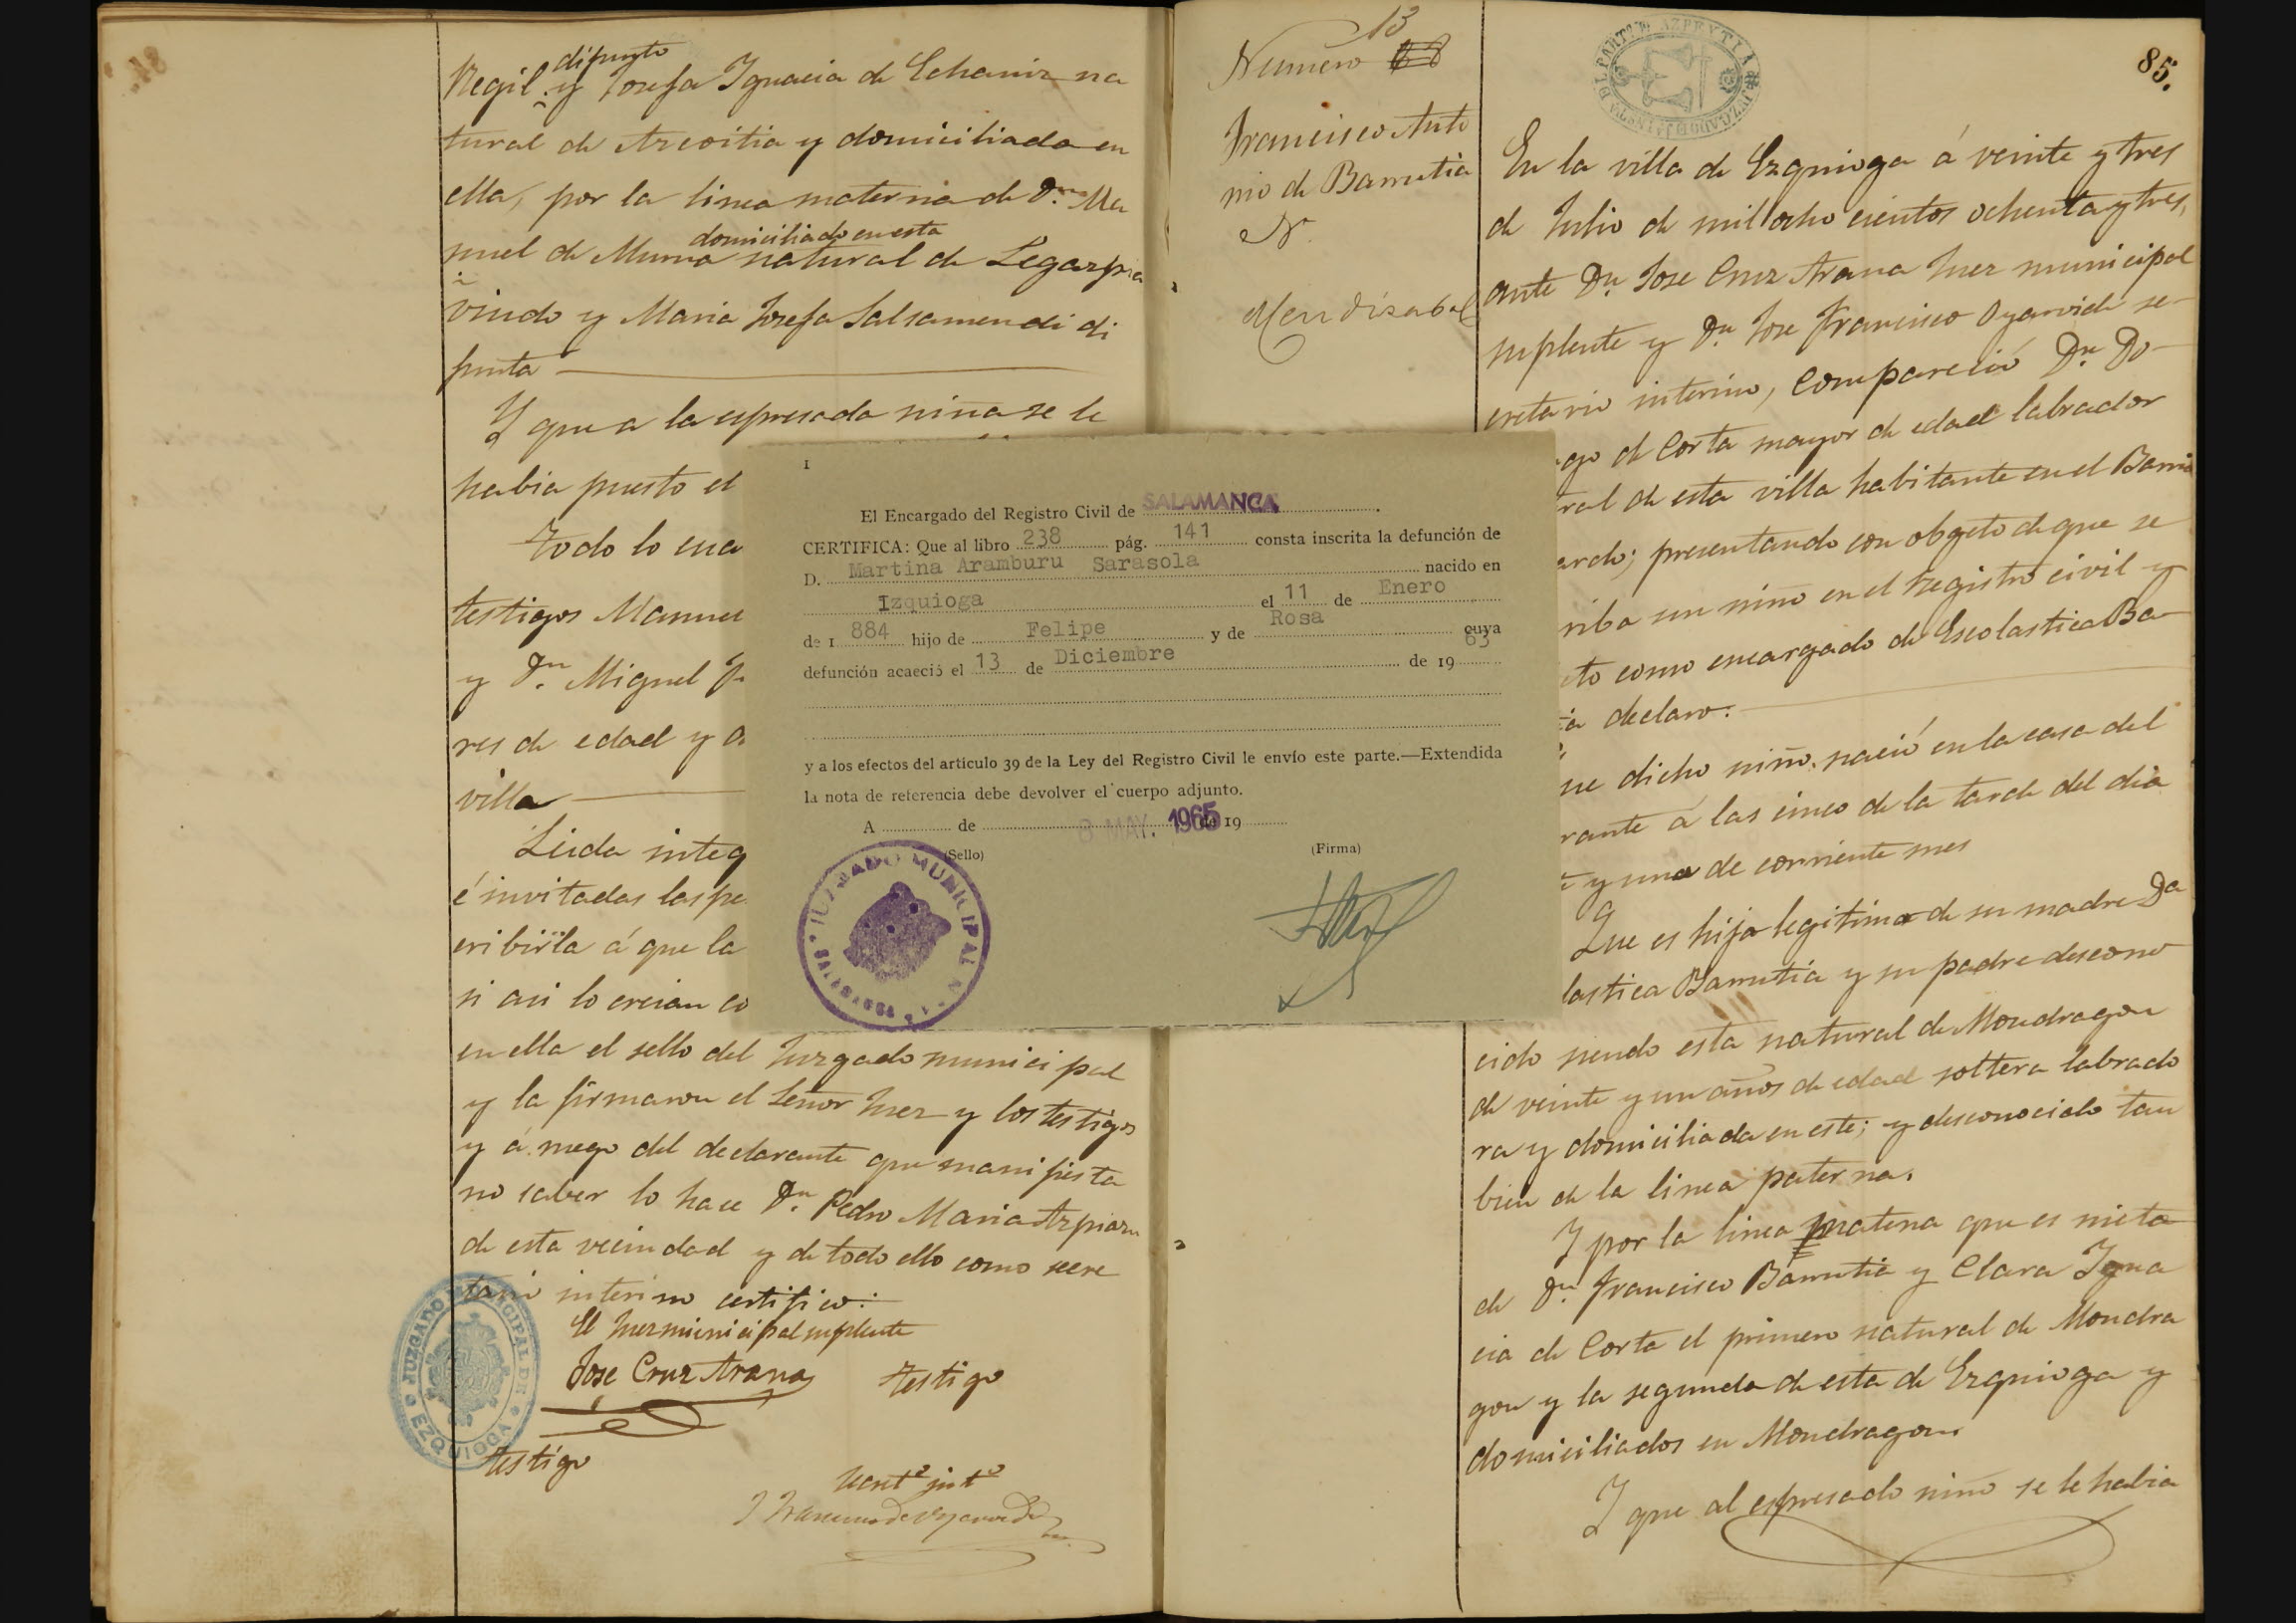 Regil. y difunto Josefa Ignacia de Echaniz na
tural de Azcoitia y domiciliada en
ella, por la linea materna de Dn. Ma
nuel de Murua domiciliado en esta natural de Legazpia
viudo y Maria Josefa Salsamendi di
funta
Y que a la espresada niña se le
habia puesto el
Todo lo cua
testigos Manuel
y Dn. Miguel
res de edad y
villa
Leida integ
é invitadas las pe
cribirla á que la
si asi lo creian co
en ella el sello del Juzgado municipal
y la firmaron el Señor Juez y los testigos
y á ruego del declarante que manifiesta
no saber lo hace Dn. Pedro Maria Azpiazu
de esta vecindad y de todo ello como secre
tario interino certifico:
El Juez municipal suplente
Jose Cruz Arana
testigo
testigo
Secret° int°
JUZGADO MUNICIPAL DE EZQUIOGA
13
Numero
Francisco Anto
nio de Barrutia
N.
Mendizabal
JUZGADO DE 1A INSTA DEL PARTO DE AZPEYTIA
85.
En la villa de Ezquioga á veinte y tres
de Julio de mil ocho cientos ochenta y tres,
ante Dn Jose Cruz Arana Juez municipal
suplente y Dn Jose Francisco Oyarvide se-
cretario interino, compareció Dn Do-
go de Corta mayor de edad labrador
ral de esta villa habitante en el Barrio
arde; presentando con objeto de que se
riba un niño en el Registro civil y
to como encargado de Escolastica Ba-
ia declaro:
ue dicho niño nació en la casa del
rante á las cinco de la tarde del dia
e y uno de corriente mes
Que es hijo legitimo de su madre Da
lastica Barrutia y su padre descono
cido siendo esta natural de Mondragon
de veinte y un años de edad soltera labrado
ra y domiciliada en este; y desconocido tan
bien de la linea paterna.
Y por la linea materna que es nieto
de Dn Francisco Barrutia y Clara Igna
cia de Corta el primero natural de Mondra
gon y la segunda de esta de Ezquioga y
domiciliados en Mondragon.
Y que al espresado niño se le habia
I
El Encargado del Registro Civil de SALAMANCA.
CERTIFICA: Que al libro 238 pág. 141 consta inscrita la defunción de
D. Martina Aramburu Sarasola nacido en
Izquioga el 11 de Enero
de 1 884 hijo de Felipe y de Rosa cuya
defunción acaeció el 13 de Diciembre de 19 63
y a los efectos del artículo 39 de la Ley del Registro Civil le envío este parte.—Extendida
la nota de referencia debe devolver el cuerpo adjunto.
A de 8 MAY. 1965 de 19
(Sello)
(Firma)
JUZGADO MUNICIPAL N.° SALAMANCA